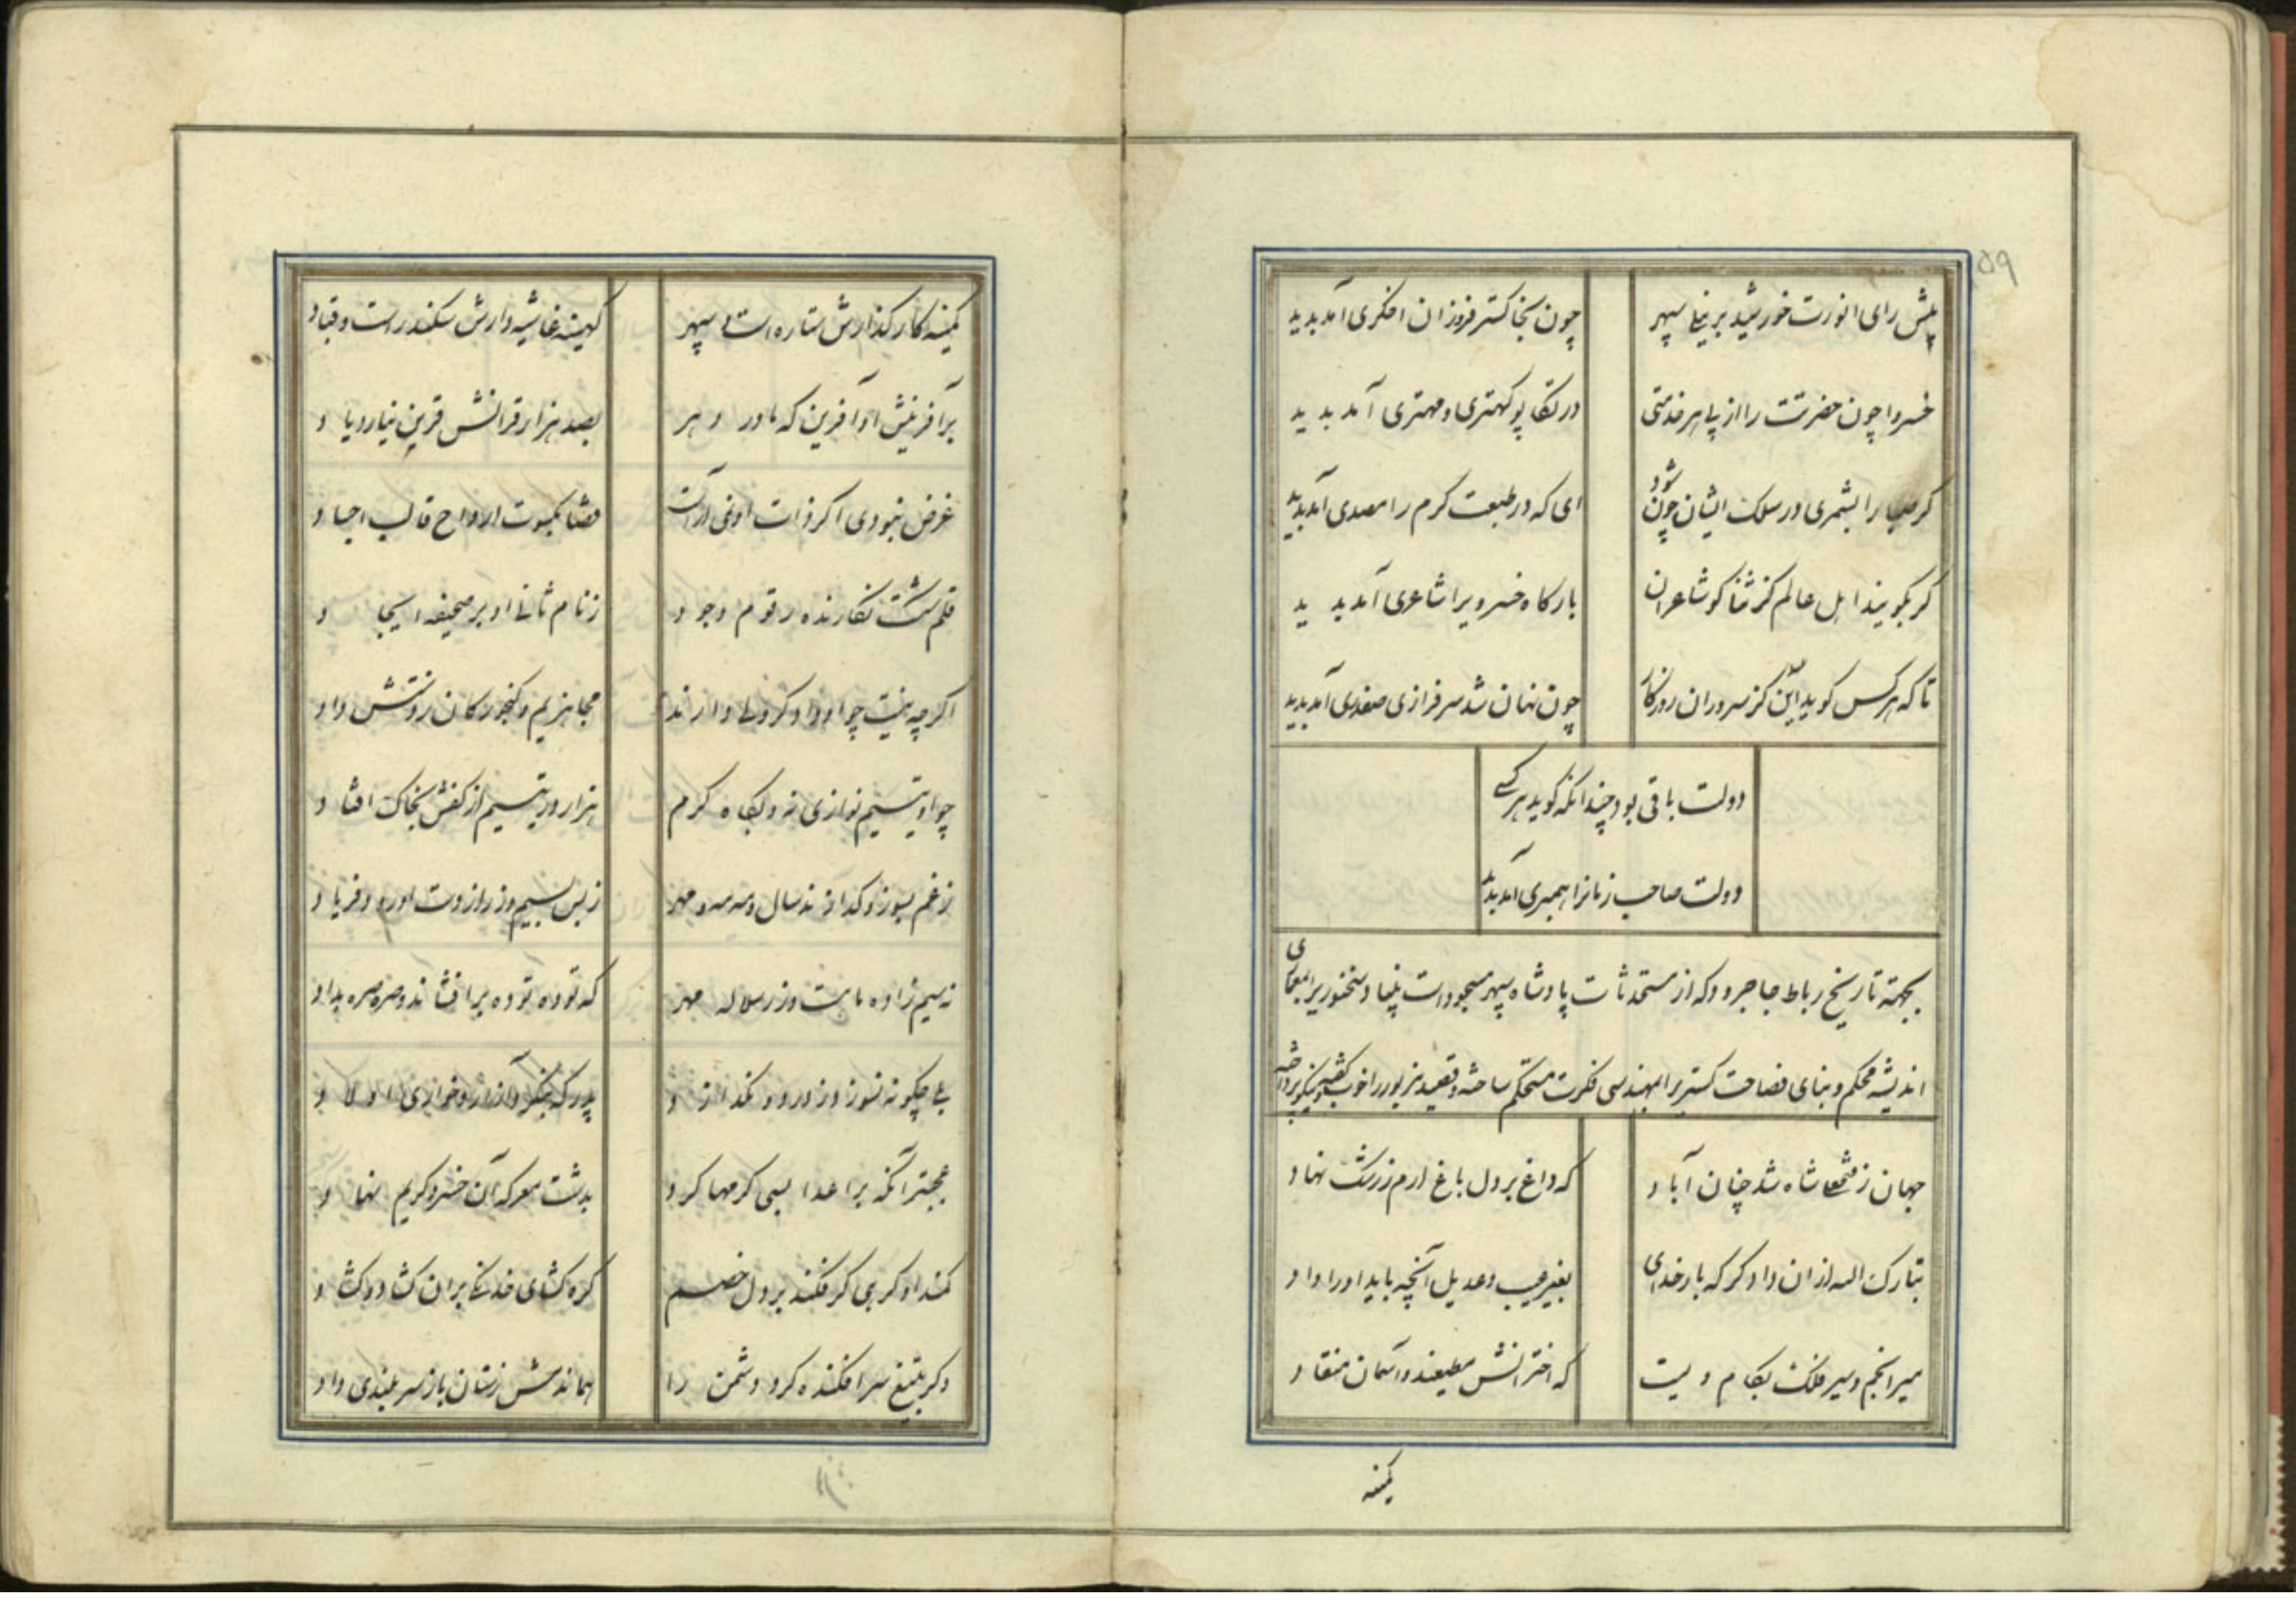 ۵۹
پیش رای انورت خورشید بر نیلی سپهر چون بخاکستر فروزان اخکری آمد پدید
خسروا چون حضرتت را از پی هر خدمتی در تکاپو کهتری و مهتری آمد پدید
کر صبا را بشمری در سلک ایشان چون شود ای که در طبعت کرم را مصدری آمد پدید
کر بکویند اهل عالم کز ثنا کو شاعران بارکاه خسرویرا شاعری آمد پدید
تا که هر کس کوید این کز سروران روزکار چون نهان شد سرفرازی صفدری آمد پدید
دولت باقی بود چندانکه کوید هر کسی
دولت صاحب زمانرا همبری آمد پدید
بجهته تاریخ رباط جاجرود که از مستحدثات پادشاه سپهر مسجود است بنیاد سخنوریرا بمعماری
اندیشه محکم و بنای فصاحت کستریرا بمهندسی فکرت مستحکم ساخته و قصیده مزبور را خوب کفته و نیکو پرداخته
جهان ز شاه شد چنان آباد که داغ بر دل باغ ارم ز رشک نهاد
تبارک الله ازان دادکر که بار خدای بغیر عیب و عدیل آنچه باید او را داد
میر انجم و سیر فلک بکام ویست که اخترانش مطیعند و آسمان منقاد
کمینه
کمینه کارکذارش ستاره است و سپهر کهینه غاشیه دارش سکندر است و قباد
بر آفرینش او آفرین که مادر دهر بصد هزار قرانش قرین نیارد یاد
غرض نبودی اکر ذات او ارواح قالب اجساد
قلم شکست نکارنده رقوم وجود ز نام ثانی او بر صحیفه ایجاد
اکرچه نیست چو او دادکر ولی دارند داد
چو او یتیم نوازی نه و بکاه کرم هزار در یتیم از کفش بخاک افتاد
ز غم بسوز و کداز ند سال و مه مه و مهر ز بس بسیم و زر از دست اوست و فریاد
نه سیم زاده ماهست و زر سلاله مهر که توده توده برافشاند و صره صره بداد
بلی چکونه نسوزد و نکدازد پدر که بنکرد آزار و خواری اولاد
عجبتر آنکه بر اعدا بسی کرمها کرد بدشت معرکه آن خسرو کریم نهاد
کمند او کرهی کر فکند بر دل خصم کره کشای خدنکی بران کشاد و کشاد
وکر بتیغ سر افکنده کرد دشمن را سنان باز سربلندی داد